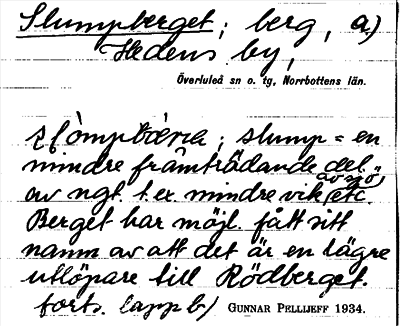 Slumpberget; berg, a)
Hedens by,
Överluleå sn o. tg, Norrbottens län.
slump = en
mindre framträdande del
av sjö,
av ngt. t. ex. mindre vik, etc.
Berget har möjl. fått sitt
namn av att det är en lägre
utlöpare till Rödberget.
forts. lapp b)
GUNNAR PELLIJEFF 1934.